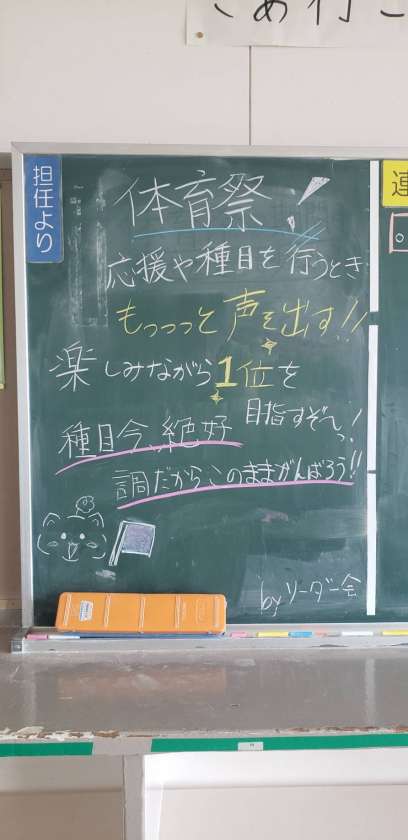 さあ行こ
担任より
連
体育祭!
応援や種目を行うとき
もっっっと声を出す!!
楽しみながら1位を
目指すぞ〜っ!
種目今、絶好
調だからこのままがんばろう!!
byリーダー会